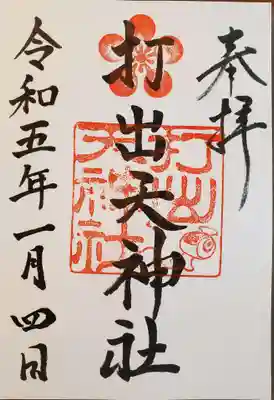 奉拝
打出天神社
打出天神社
令和五年一月四日